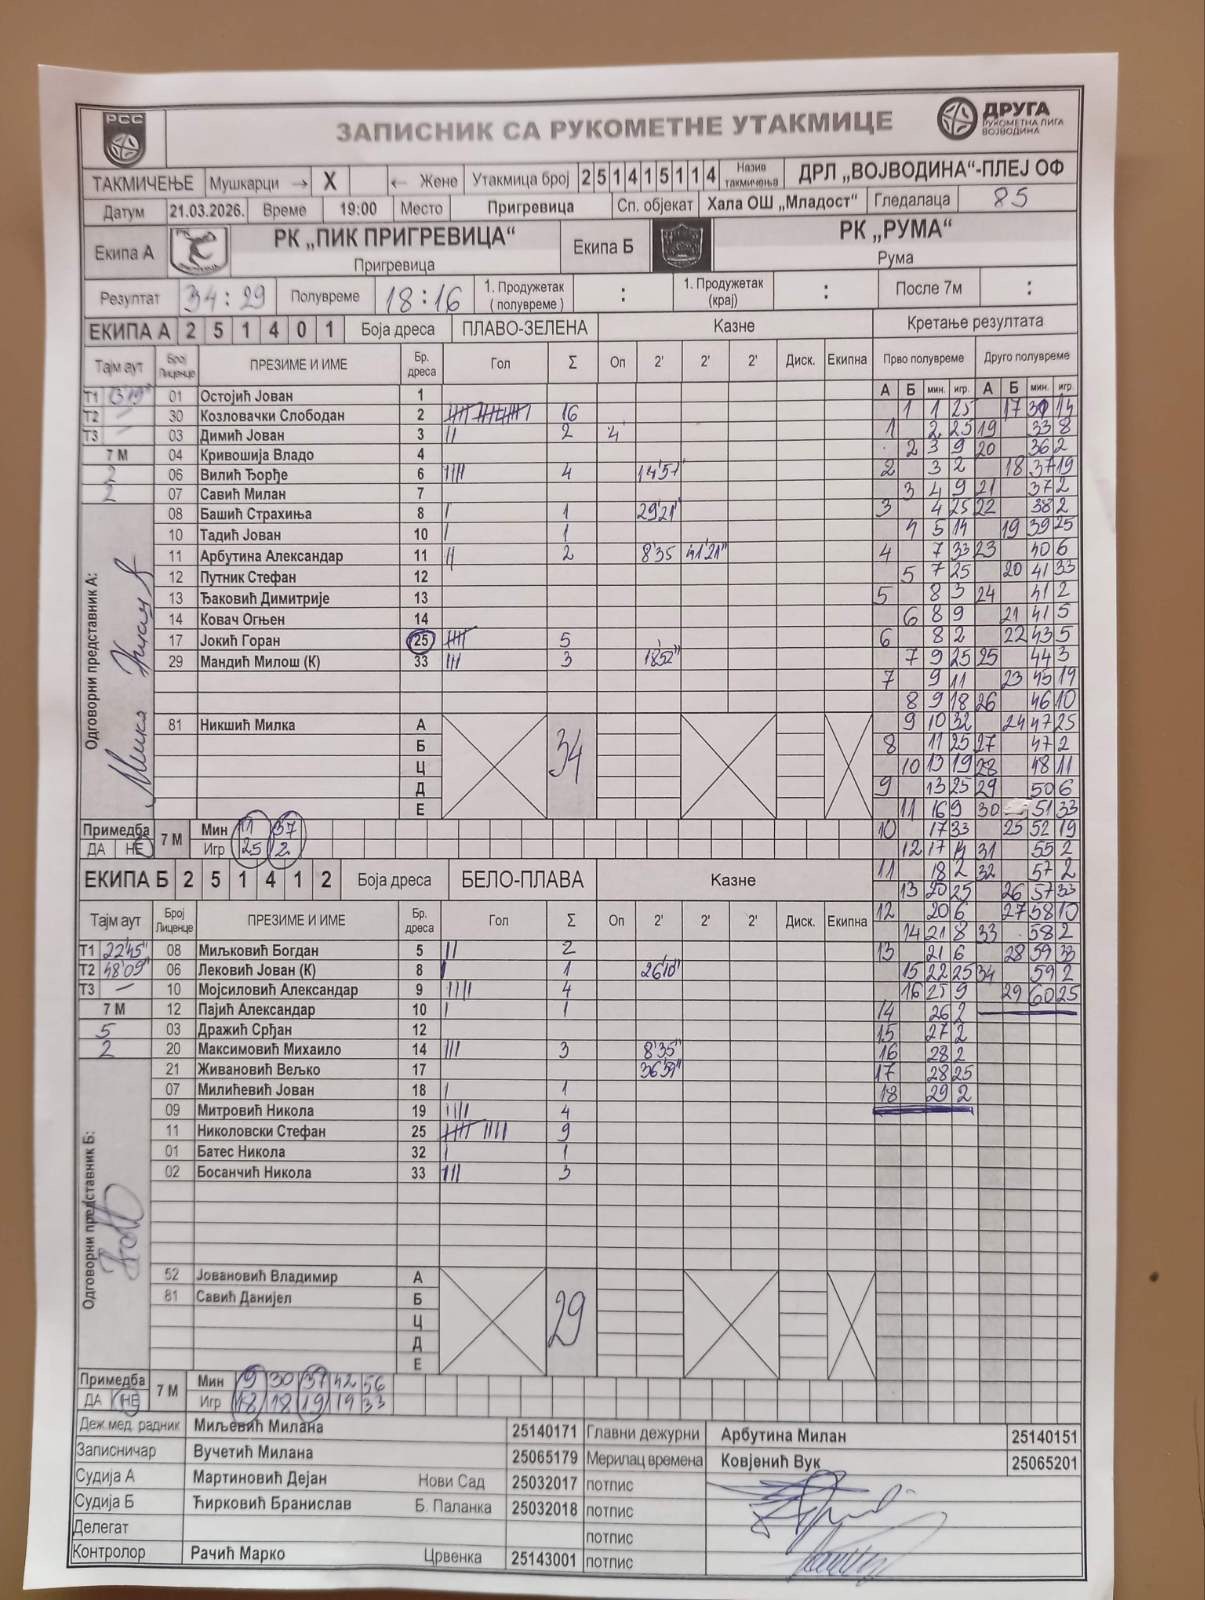 РСС
ЗАПИСНИК СА РУКОМЕТНЕ УТАКМИЦЕ
ДРУГА
РУКОМЕТНА ЛИГА
ВОЈВОДИНА
ТАКМИЧЕЊЕ Мушкарци → X ← Жене Утакмица број 2 5 1 4 1 5 1 1 4 Назив такмичења ДРЛ „ВОЈВОДИНА“-ПЛЕЈ ОФ
Датум 21.03.2026. Време 19:00 Место Пригревица Сп. објекат Хала ОШ „Младост“ Гледалаца 85
Екипа А РК „ПИК ПРИГРЕВИЦА“ Екипа Б РК „РУМА“
Пригревица Рума
Резултат 34:29 Полувреме 18:16 1. Продужетак (полувреме) : 1. Продужетак (крај) : После 7м :
ЕКИПА А 2 5 1 4 0 1 Боја дреса ПЛАВО-ЗЕЛЕНА Казне Кретање резултата
Тајм аут Број Лиценце ПРЕЗИМЕ И ИМЕ Бр. дреса Гол Σ Оп 2' 2' 2' Диск. Екипна Прво полувреме Друго полувреме
А Б мин. игр. А Б мин. игр.
Т1 01 Остојић Јован 1
Т2 — 30 Козловачки Слободан 2 16
Т3 — 03 Димић Јован 3 2 4'
7 М 04 Кривошија Владо 4
2 06 Вилић Ђорђе 6 4 14'57
2 07 Савић Милан 7
08 Башић Страхиња 8 1 29'21
10 Тадић Јован 10 1
11 Арбутина Александар 11 2 8'35 41'21"
12 Путник Стефан 12
13 Ђаковић Димитрије 13
14 Ковач Огњен 14
17 Јокић Горан 25 5
29 Мандић Милош (К) 33 3 18'52"
81 Никшић Милка А
Б
Ц
Д
Е
34
Одговорни представник А:
1 1 25 17 30 14
1 2 25 19 33 8
2 3 9 20 36 2
2 3 2 18 37 19
3 4 9 21 37 2
3 4 25 22 38 2
4 5 14 19 39 25
4 7 33 23 40 6
5 7 25 20 41 33
5 8 3 24 41 2
6 8 9 21 41 5
6 8 2 22 43 5
7 9 25 25 44 3
7 9 11 23 45 19
8 9 18 26 46 10
9 10 32 24 47 25
8 11 25 27 47 2
10 13 19 28 48 11
9 13 25 29 50 6
11 16 9 30 51 33
10 17 33 25 52 19
12 17 31 55 2
11 18 2 32 57 2
13 20 25 26 57 33
12 20 6 27 58 10
14 21 8 33 58 2
13 21 6 28 59 33
15 22 25 34 59 2
16 25 9 29 60 25
14 26 2
15 27 2
16 28 2
17 28 25
18 29 2
Примедба 7 М Мин 11 37
ДА НЕ Игр 25 2
ЕКИПА Б 2 5 1 4 1 2 Боја дреса БЕЛО-ПЛАВА Казне
Тајм аут Број Лиценце ПРЕЗИМЕ И ИМЕ Бр. дреса Гол Σ Оп 2' 2' 2' Диск. Екипна
Т1 22'45" 08 Миљковић Богдан 5 2
Т2 48'09" 06 Лековић Јован (К) 8 1 26'10"
Т3 — 10 Мојсиловић Александар 9 4
7 М 12 Пајић Александар 10 1
5 03 Дражић Срђан 12
2 20 Максимовић Михаило 14 3 8'35"
21 Живановић Вељко 17 36'59"
07 Милићевић Јован 18 1
09 Митровић Никола 19 4
11 Николовски Стефан 25 9
01 Батес Никола 32 1
02 Босанчић Никола 33 3
52 Јовановић Владимир А
81 Савић Данијел Б
Ц
Д
Е
29
Одговорни представник Б:
Примедба 7 М Мин 9 30 37 42 56
ДА НЕ Игр 18 18 19 19 33
Деж.мед. радник Миљевић Милана 25140171 Главни дежурни Арбутина Милан 25140151
Записничар Вучетић Милана 25065179 Мерилац времена Ковјенић Вук 25065201
Судија А Мартиновић Дејан Нови Сад 25032017 потпис
Судија Б Ћирковић Бранислав Б. Паланка 25032018 потпис
Делегат потпис
Контролор Рачић Марко Црвенка 25143001 потпис